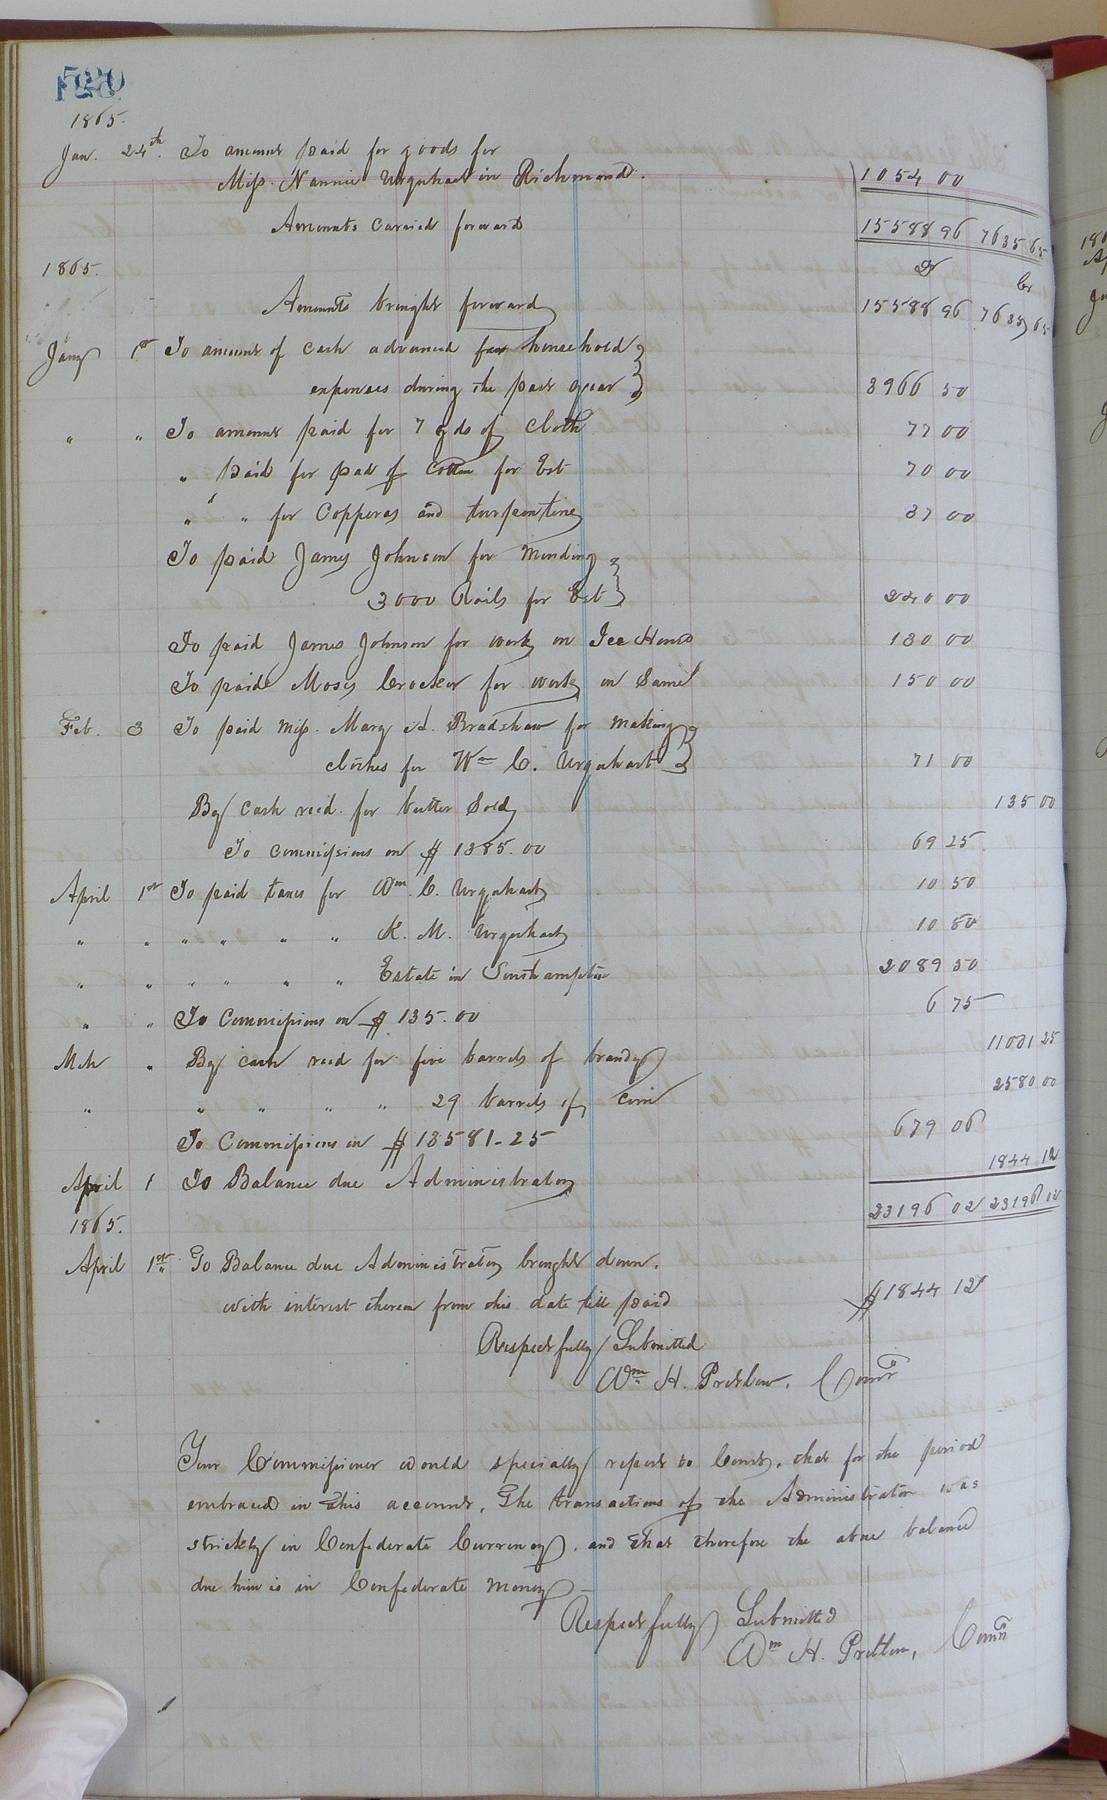 520
1865.
Jan. 24th. To amount paid for goods for
Miss. Nannie Urquhart in Richmond. 1054 00
Amounts carried forward 15588 96 7635 65
1865. Dr Cr
Amounts brought forward 15588 96 7635 65
Jany 1st To amount of cash advanced for household
expenses during the past year 3966 50
" " To amount paid for 7 yds of Cloth 77 00
" paid for pad of Cotton for Est 70 00
" " for Copperas and turpentine 37 00
To paid James Johnson for Mending
3000 Rails for Est 240 00
To paid James Johnson for work on Ice House 130 00
To paid Moses Crocker for work on Same 150 00
Feb. 3 To paid Miss. Mary A. Bradshaw for making
clothes for Wm C. Urquhart 71 00
By cash recd. for butter Sold 135 00
To commissions on $1385.00 69 25
April 1st To paid taxes for Wm C. Urquhart 10 50
" " " " " " K. M. Urquhart 10 50
" " " " " " Estate in Southampton 2089 50
" " To Commissions on $135.00 6 75
Mch " By cash recd for five barrels of brandy 11001 25
" " " " " 29 barrels of corn 2580 00
To Commissions on $13581-25 679 06
April 1 To Balance due Administrator 1844 12
1865. 23196 02 23196 02
April 1st To Balance due Administrator brought down.
with interest thereon from this date till paid $1844 12
Respectfully Submitted
Wm H. Pretlow. Comr
Your Commissioner would specially report to Court, that for the period
embraced in this account, The transactions of the Administrator was
strictly in Confederate Currency, and that therefore the above balance
due him is in Confederate Money -
Respectfully Submitted
Wm H. Pretlow, Comr